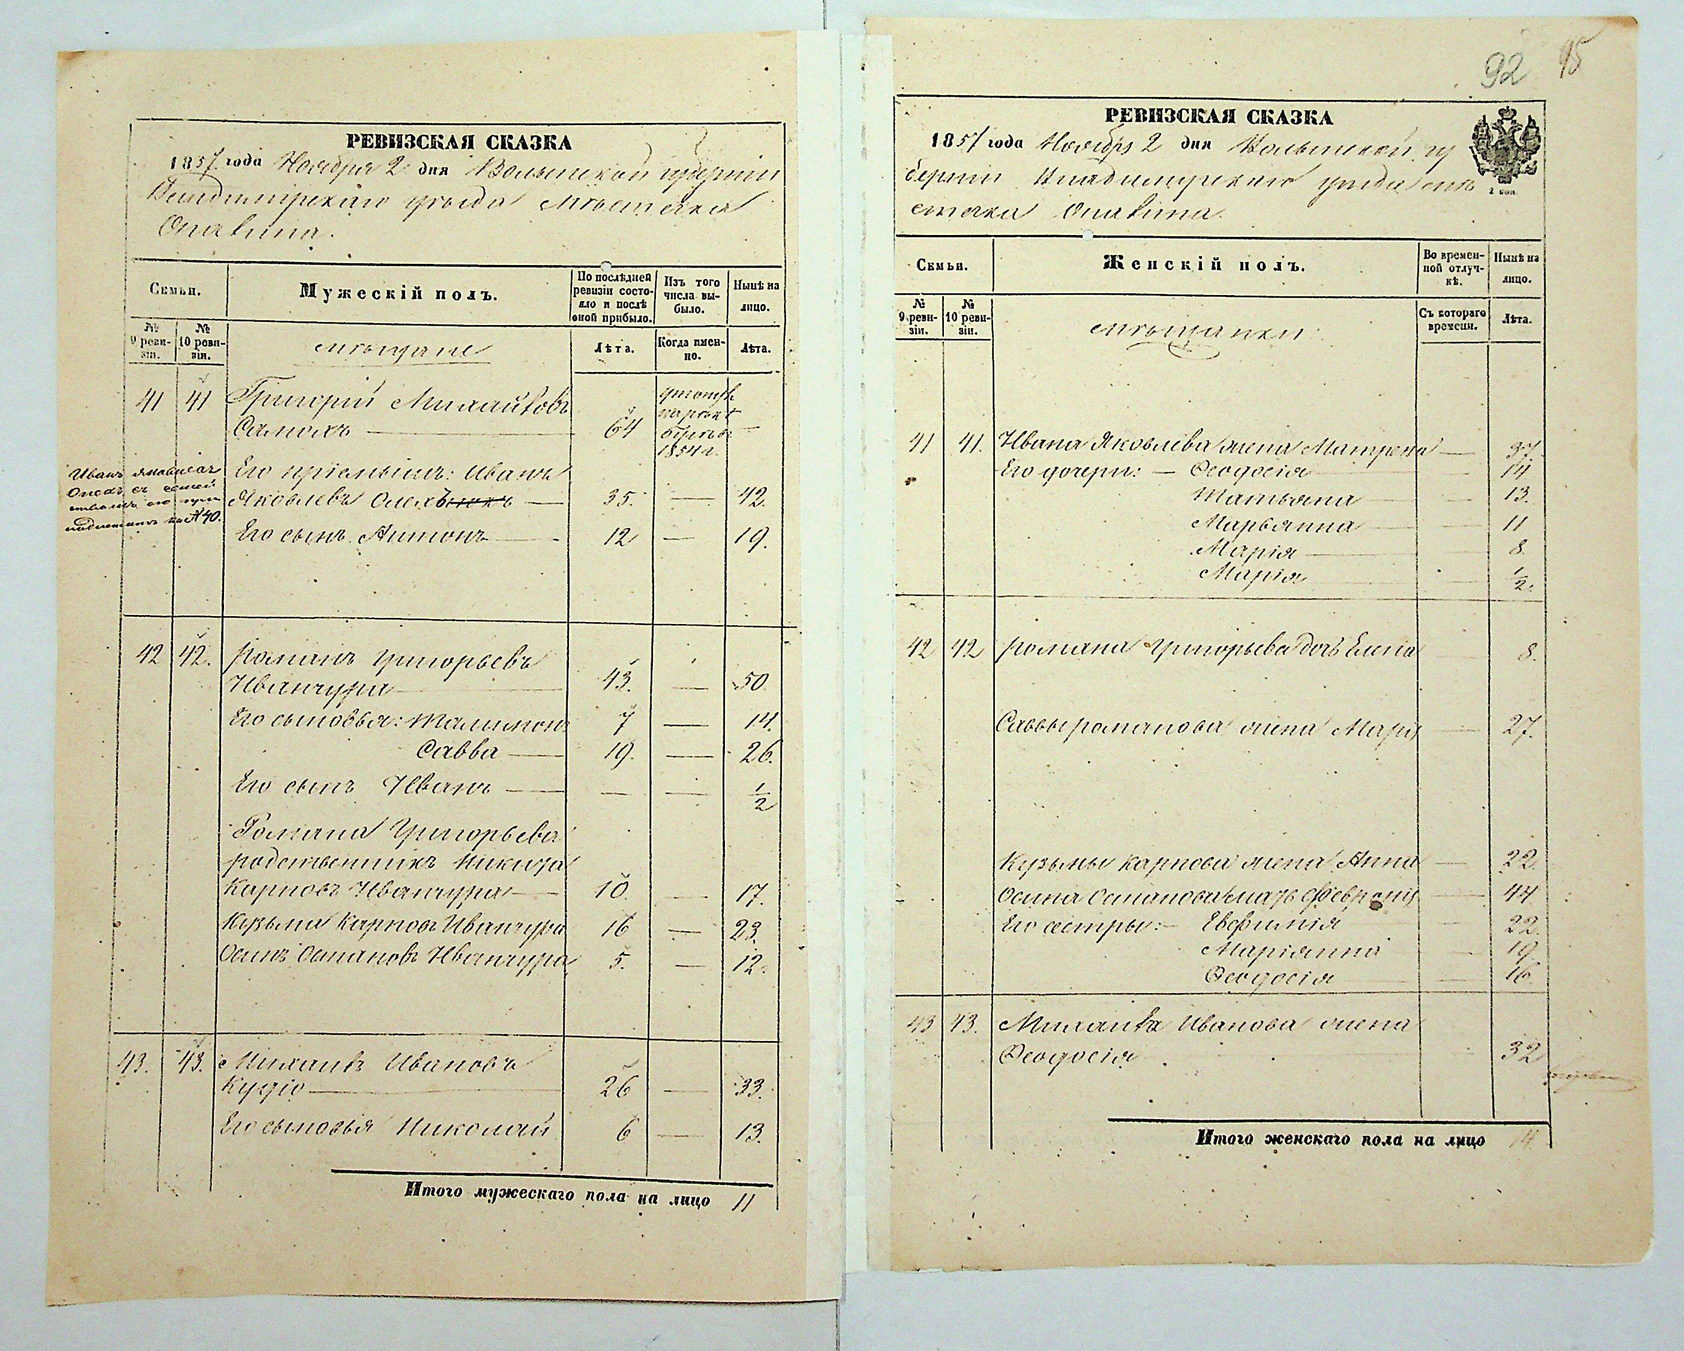 РЕВИЗСКАЯ СКАЗКА
1857 года Ноября 2 дня Волынской губерніи
Владимірскаго уѣзда мѣстечка
Опалина.
Семьи.
Мужескій полъ.
По послѣдней ревизіи состояло и послѣ оной прибыло.
Изъ того числа выбыло.
Нынѣ на лицо.
№ 9 ревизіи.
№ 10 ревизіи.
мѣщане
Лѣта.
Когда именно.
Лѣта.
41 41 Григорій Михайловъ
64 1854 г.
Его пріемышъ: Иванъ
Яковлевъ 35. — 42.
Его сынъ Антонъ — 12 — 19.
№ 40.
42 42. Романъ Григорьевъ
Иванчура — 43. — 50.
Его сыновья: 7 — 14.
Савва — 19. — 26.
Его сынъ Иванъ — — — 1/2
Романа Григорьева
родственникъ Никита
Карповъ Иванчура — 10. — 17.
Кузьма Карповъ Иванчура 16 — 23.
Осипъ Остаповъ Иванчура 5. — 12.
43. 43. Михаилъ Ивановъ
26 — 33.
Его сыновья Николай 6 — 13.
Итого мужескаго пола на лицо 11
92 95
РЕВИЗСКАЯ СКАЗКА
1857 года Ноября 2 дня Волынской гу
берніи Владимірскаго уѣзда мѣ
стечка Опалина.
2 коп.
Семьи.
Женскій полъ.
Во временной отлучкѣ.
Нынѣ на лицо.
№ 9 ревизіи.
№ 10 ревизіи.
мѣщанки
Съ котораго времени.
Лѣта.
41 41. Ивана Яковлева жена Матрена — 37.
Его дочери: — Феодосія 14
Татьяна — 13.
Марьянна — 11
Марія — 8.
Марія 1/2.
42 42 Романа Григорьева дочь Елена 8.
Саввы Романова жена Марія — 27.
Кузьмы Карпова жена Анна — 22.
Осипа Остапова мать Феврония — 44.
Его сестры: — Евфимія 22.
Маріянна 19.
Феодосія 16.
43 43. Михаила Иванова жена
Феодосія 32
Итого женскаго пола на лицо 14